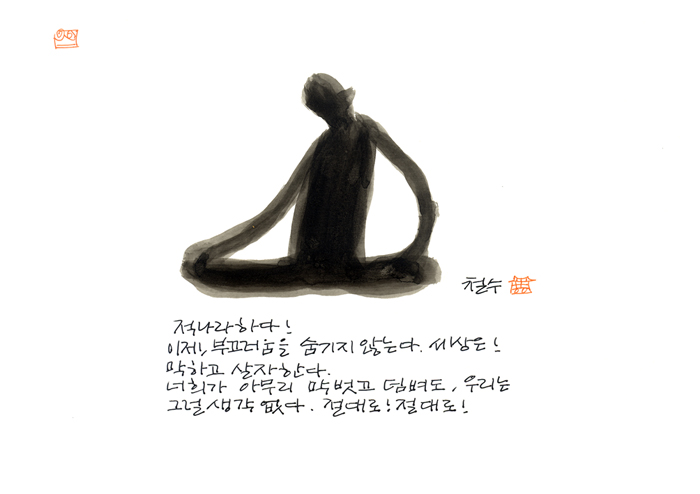 철수
적나라하다!
이제, 부끄러움을 숨기지 않는다. 세상은!
막하고 살자한다.
너희가 아무리 막벗고 덤벼도, 우리는
그럴 생각 없다. 절대로! 절대로!